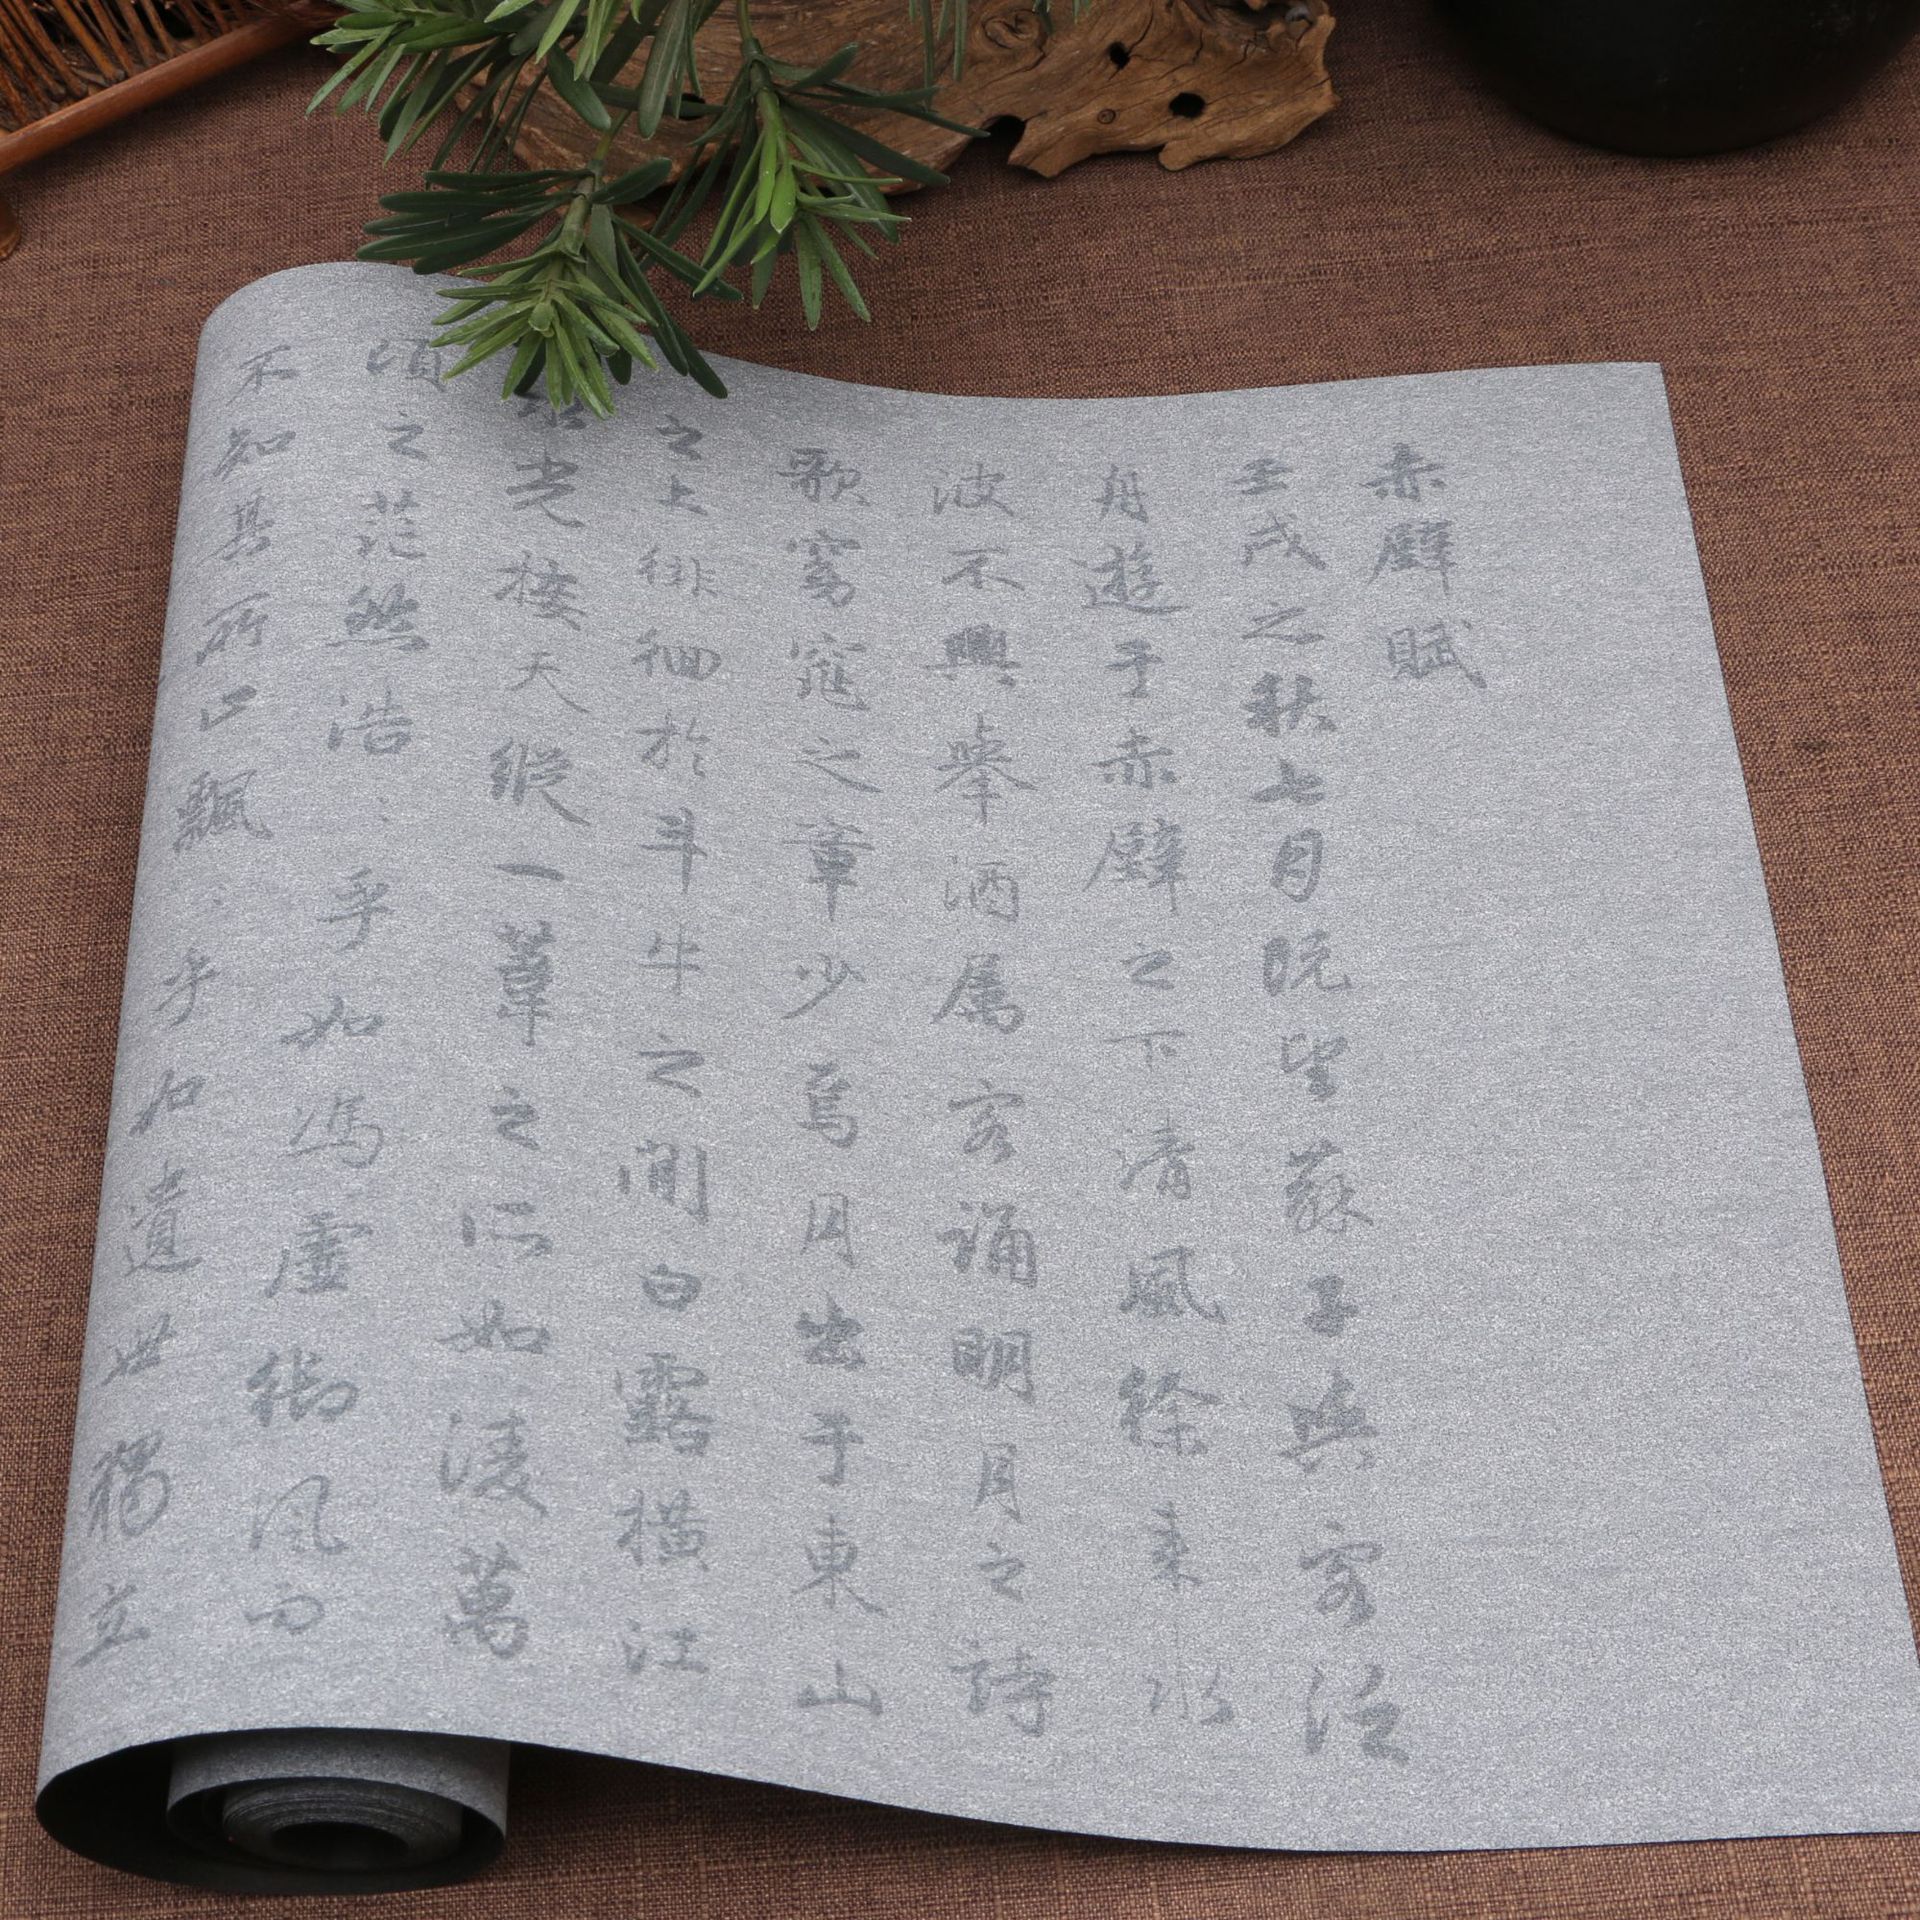 赤壁賦
壬戌之秋七月既望蘇子與客泛
舟遊于赤壁之下清風徐來水
波不興舉酒属客誦明月之詩
歌窈窕之章少焉月出于東山
之上徘徊於斗牛之間白露橫江
光接天縱一葦之所如淩萬
頃之茫然浩〻乎如馮虛御風而
不知其所止飄〻乎如遺世獨立